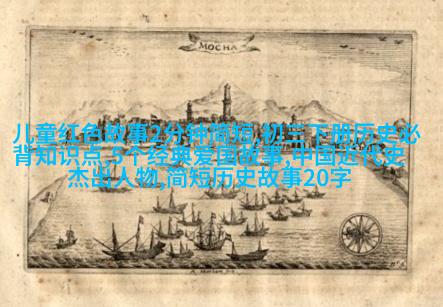 MOCHA
儿童红色故事2分钟简短,初三下册历史必
背知识点,5个经典爱国故事,中国近代史
杰出人物,简短历史故事20字